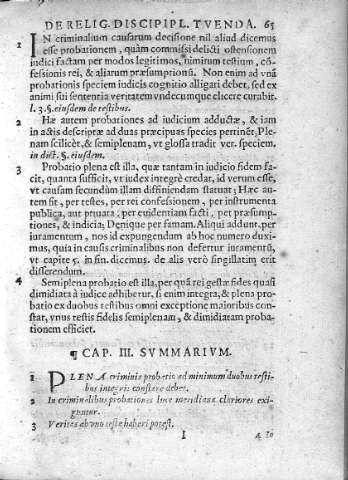 DE RELIG. DISCIPIPL. TVENDA. 65
1 IN criminalium causarum decisione nil aliud dicemus
esse probationem, quàm commissi delicti ostensionem
iudici factam per modos legitimos, nimirum testium, cõ-
fessionis rei, & aliarum præsumptionũ. Non enim ad vnã
probationis speciem iudicis cognitio alligari debet, sed ex
animi sui sententia veritatem vndecumque elicere curabit.
l. 3. §. eiusdem de testibus.
2 Hæ autem probationes ad iudicium adductæ, & iam
in actis descriptæ ad duas præcipuas species pertinẽt, Ple-
nam scilicèt, & semiplenam, vt glossa tradit ver. speciem,
in dict. §. eiusdem.
3 Probatio plena est illa, quæ tantam in iudicio fidem fa-
cit, quanta sufficit, vt iudex integrè credat, id verum esse,
vt causam secundùm illam diffiniendam statuat; Hæc au-
tem fit, per testes, per rei confessionem, per instrumenta
publica, aut priuata, per euidentiam facti, per præsump-
tiones, & indicia; Denique per famam. Aliqui addunt, per
iuramentum, nos id expungendum ab hoc numero duxi-
mus, quia in causis criminalibus non defertur iuramentũ,
vt capite 5. in fin. dicemus. de alis verò singillatim erit
disserendum.
4 Semiplena probatio est illa, per quã rei gestæ fides quasi
dimidiata à iudice adhibetur, si enim integra, & plena pro
batio ex duobus testibus omni exceptione maioribus con-
stat, vnus testis fidelis semiplenam, & dimidiatam proba-
tionem efficiet.
¶ CAP. III. SVMMARIVM.
1 PLENA criminis probatio ad minimum duobus testi-
bus integris constare debet.
2 In criminalibus probationes luce meridiana clariores exi-
guntur.
3 Veritas ab vno teste haberi potest.
I